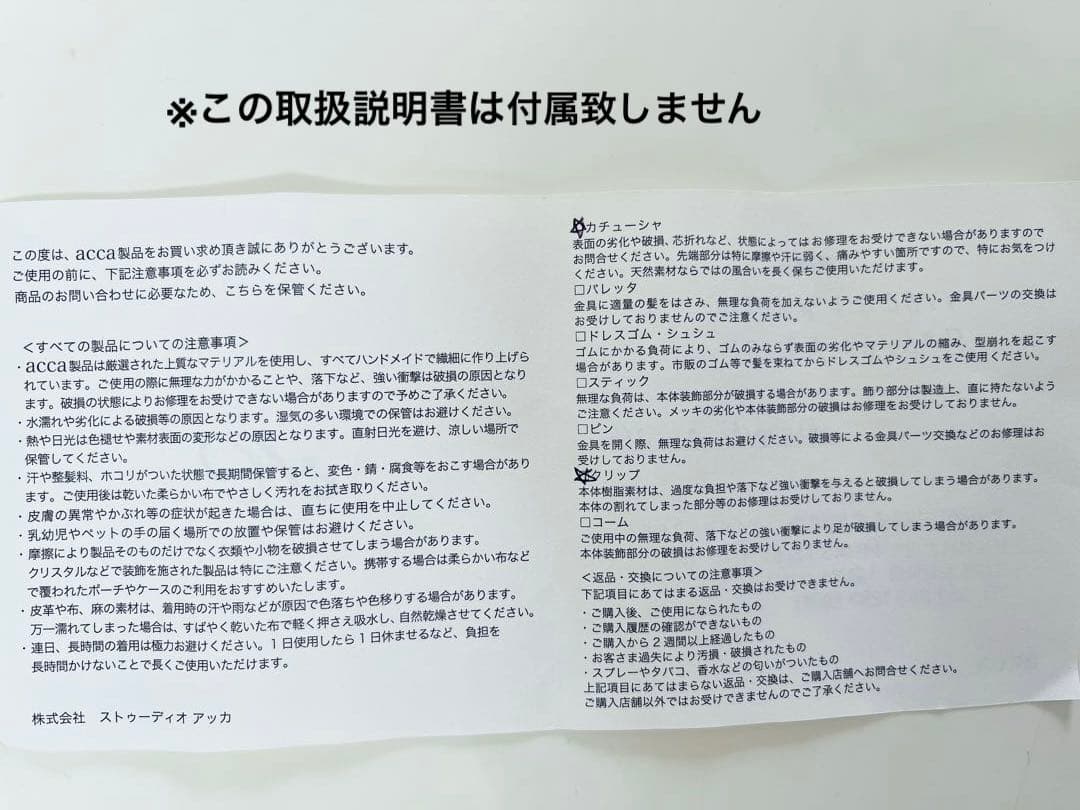 ※この取扱説明書は付属致しません
この度は、acca製品をお買い求め頂き誠にありがとうございます。
ご使用の前に、下記注意事項を必ずお読みください。
商品のお問い合わせに必要なため、こちらを保管ください。
＜すべての製品についての注意事項＞
・acca製品は厳選された上質なマテリアルを使用し、すべてハンドメイドで繊細に作り上げら
れています。ご使用の際に無理な力がかかることや、落下など、強い衝撃は破損の原因となり
ます。破損の状態によりお修理をお受けできない場合がありますので予めご了承ください。
・水濡れや劣化による破損等の原因となります。湿気の多い環境での保管はお避けください。
・熱や日光は色褪せや素材表面の変形などの原因となります。直射日光を避け、涼しい場所で
保管してください。
・汗や整髪料、ホコリがついた状態で長期間保管すると、変色・錆・腐食等をおこす場合があり
ます。ご使用後は乾いた柔らかい布でやさしく汚れをお拭き取りください。
・皮膚の異常やかぶれ等の症状が起きた場合は、直ちに使用を中止してください。
・乳幼児やペットの手の届く場所での放置や保管はお避けください。
・摩擦により製品そのものだけでなく衣類や小物を破損させてしまう場合があります。
クリスタルなどで装飾を施された製品は特にご注意ください。携帯する場合は柔らかい布など
で覆われたポーチやケースのご利用をおすすめいたします。
・皮革や布、麻の素材は、着用時の汗や雨などが原因で色落ちや色移りする場合があります。
万一濡れてしまった場合は、すばやく乾いた布で軽く押さえ吸水し、自然乾燥させてください。
・連日、長時間の着用は極力お避けください。1日使用したら1日休ませるなど、負担を
長時間かけないことで長くご使用いただけます。
株式会社 ストゥーディオ アッカ
カチューシャ
表面の劣化や破損、芯折れなど、状態によってはお修理をお受けできない場合がありますので
お問合せください。先端部分は特に摩擦や汗に弱く、痛みやすい箇所ですので、特にお気をつけ
ください。天然素材ならではの風合いを長く保ちご使用いただけます。
□バレッタ
金具に適量の髪をはさみ、無理な負荷を加えないようご使用ください。金具パーツの交換は
お受けしておりませんのでご注意ください。
□ドレスゴム・シュシュ
ゴムにかかる負荷により、ゴムのみならず表面の劣化やマテリアルの縮み、型崩れを起こす
場合があります。市販のゴム等で髪を束ねてからドレスゴムやシュシュをご使用ください。
□スティック
無理な負荷は、本体装飾部分が破損する場合があります。飾り部分は製造上、直に持たないよう
ご注意ください。メッキの劣化や本体装飾部分の破損はお修理をお受けしておりません。
□ピン
金具を開く際、無理な負荷はお避けください。破損等による金具パーツ交換などのお修理はお
受けしておりません。
クリップ
本体樹脂素材は、過度な負担や落下など強い衝撃を与えると破損してしまう場合があります。
本体の割れてしまった部分等のお修理はお受けしておりません。
□コーム
ご使用中の無理な負荷、落下などの強い衝撃により足が破損してしまう場合があります。
本体装飾部分の破損はお修理をお受けしておりません。
＜返品・交換についての注意事項＞
下記項目にあてはまる返品・交換はお受けできません。
・ご購入後、ご使用になられたもの
・ご購入履歴の確認ができないもの
・ご購入から2週間以上経過したもの
・お客さま過失により汚損・破損されたもの
・スプレーやタバコ、香水などの匂いがついたもの
上記項目にあてはまらない返品・交換は、ご購入店舗へお問合せください。
ご購入店舗以外ではお受けできませんのでご了承ください。